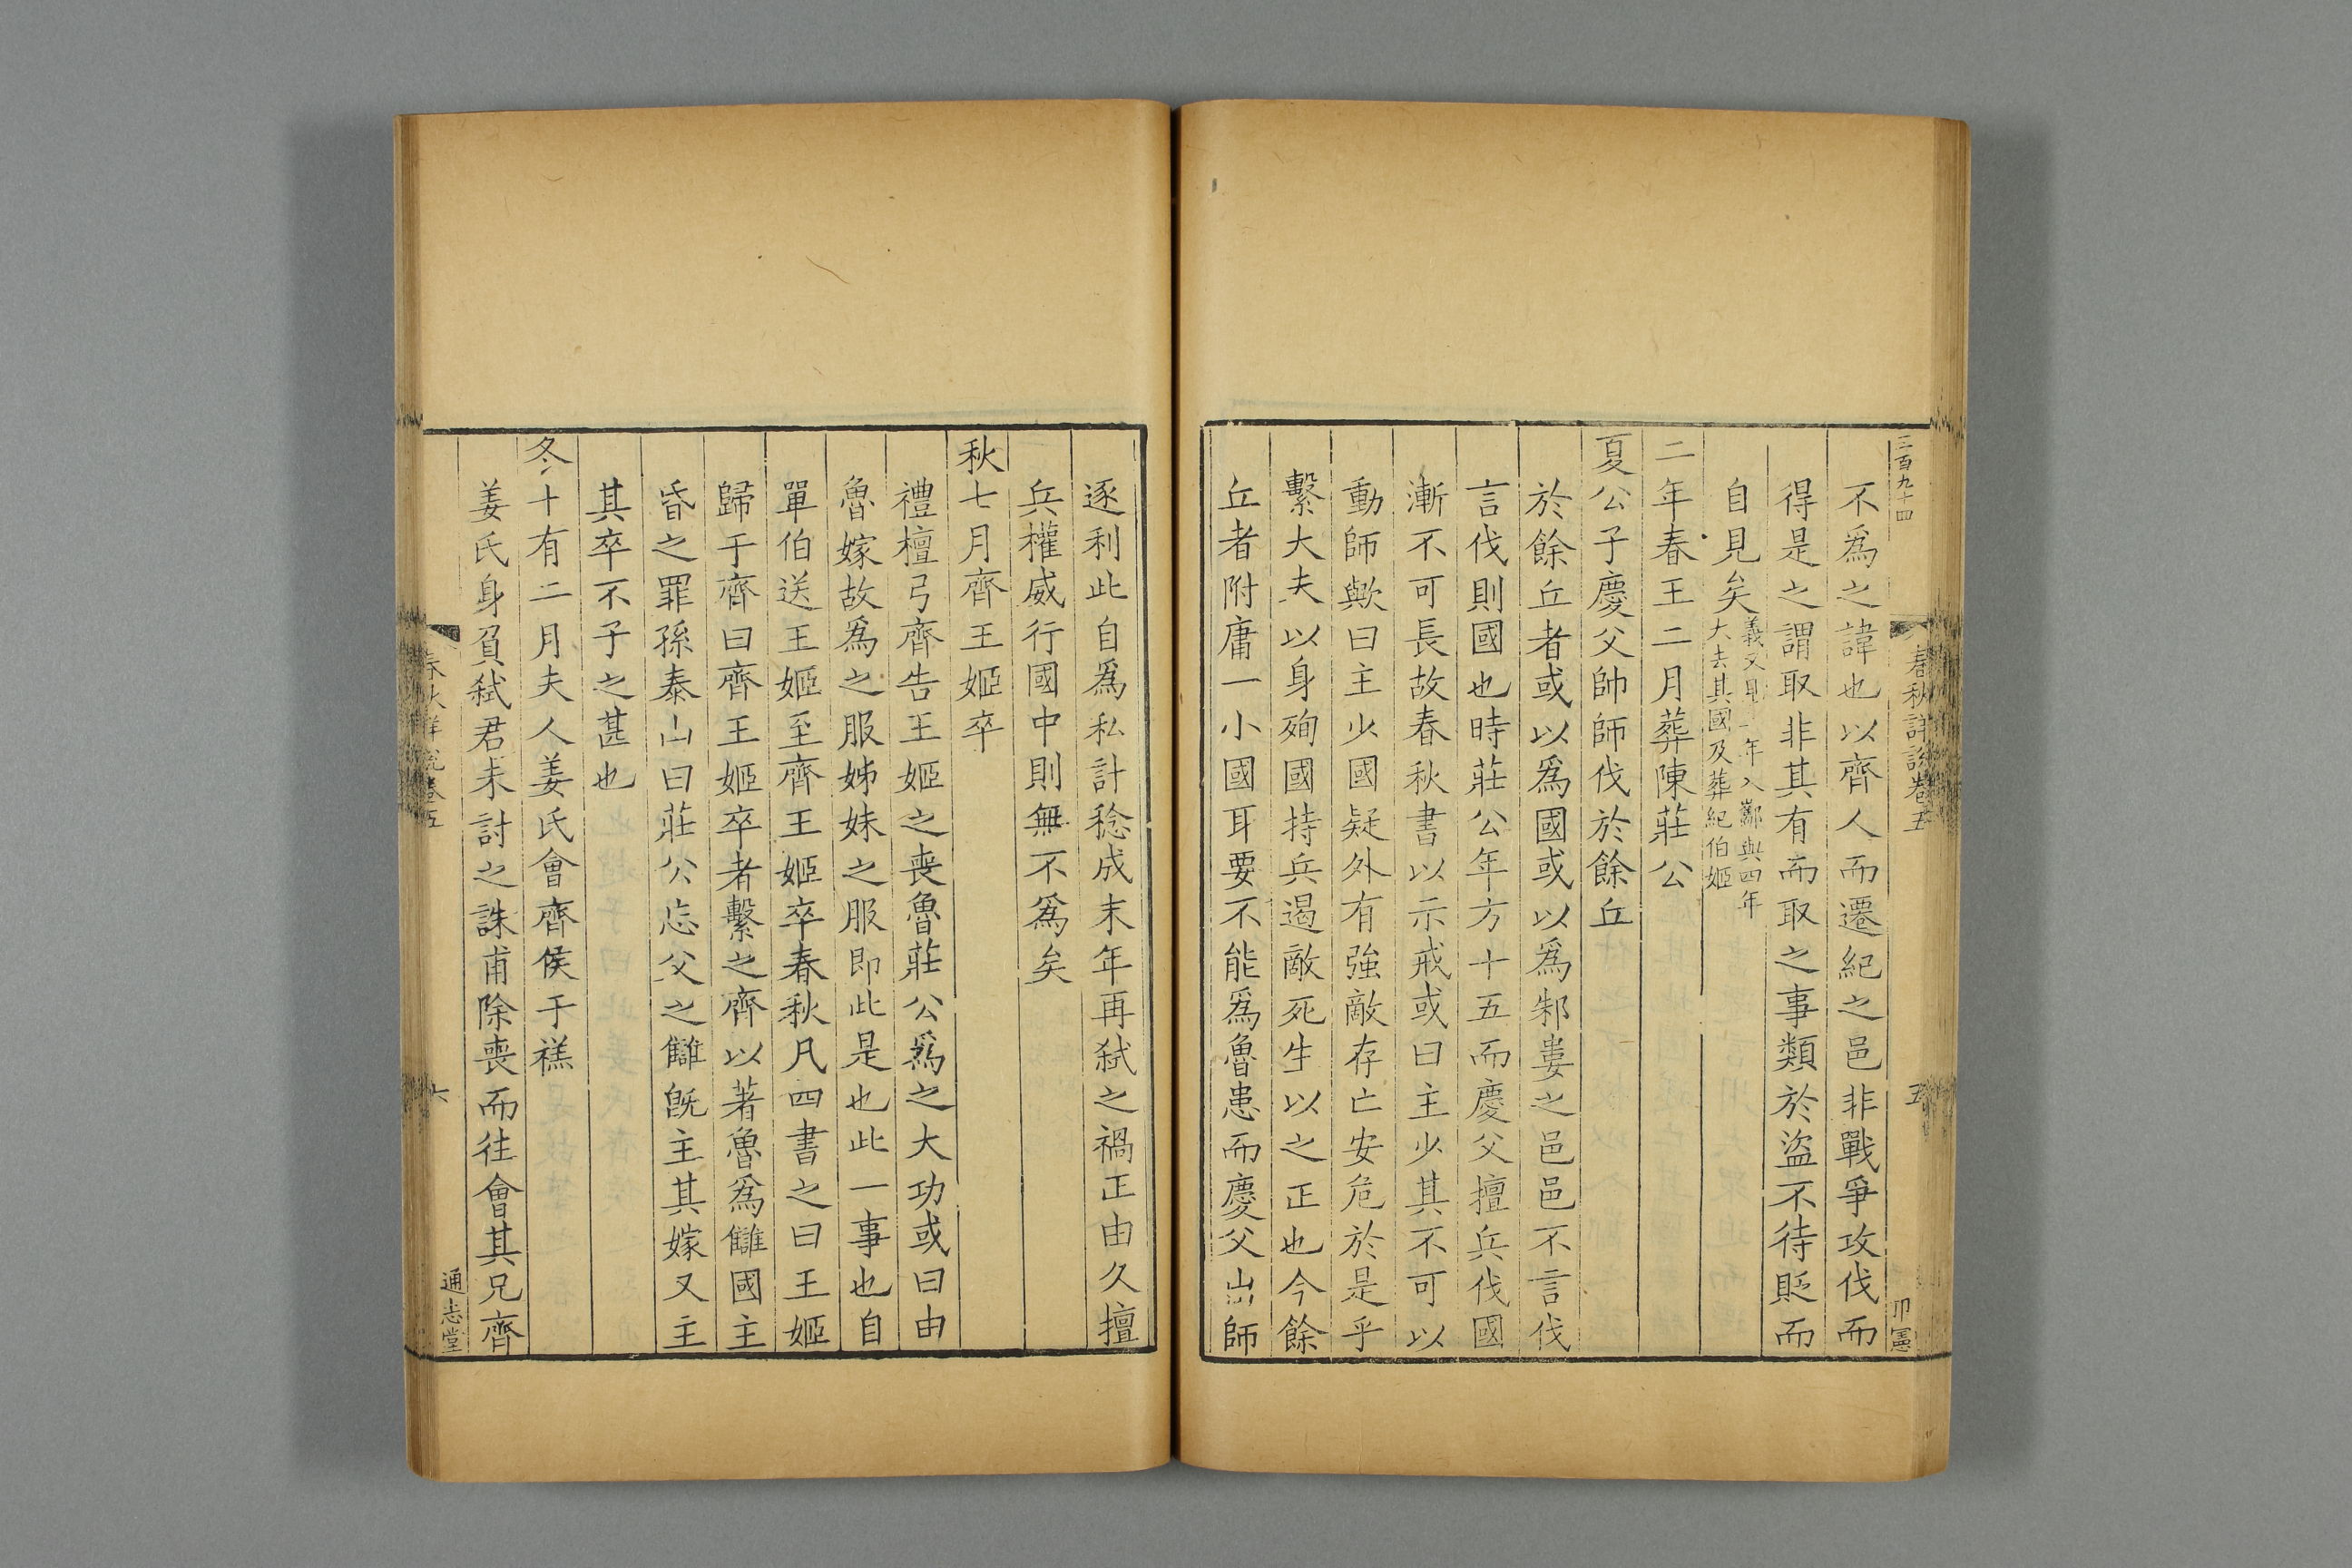 三百九十四
春秋詳說卷五
五
不爲之諱也以齊人而遷紀之邑非戰爭攻伐而
得是之謂取非其有而取之事類於盜不待貶而
自見矣
義又見 年入酅與四年
大去其國及葬紀伯姬
二年春王二月葬陳莊公
夏公子慶父帥師伐於餘丘
於餘丘者或以爲國或以爲邾婁之邑邑不言伐
言伐則國也時莊公年方十五而慶父擅兵伐國
漸不可長故春秋書以示戒或曰主少其不可以
動師歟曰主少國疑外有強敵存亡安危於是乎
繫大夫以身殉國持兵遏敵死生以之正也今餘
丘者附庸一小國耳要不能爲魯患而慶父出師
逐利此自爲私計稔成末年再弑之禍正由久擅
兵權威行國中則無不爲矣
秋七月齊王姬卒
禮檀弓齊告王姬之喪魯莊公爲之大功或曰由
魯嫁故爲之服姊妹之服即此是也此一事也自
單伯送王姬至齊王姬卒春秋凡四書之曰王姬
歸于齊曰齊王姬卒者繫之齊以著魯爲讎國主
昏之罪孫泰山曰莊公忘父之讎旣主其嫁又主
其卒不子之甚也
冬十有二月夫人姜氏會齊侯于禚
姜氏身負弑君未討之誅甫除喪而往會其兄齊
春秋詳說卷五
六
通志堂